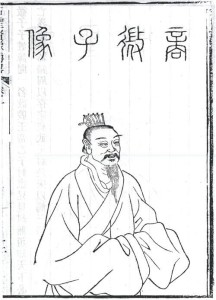 商微子像